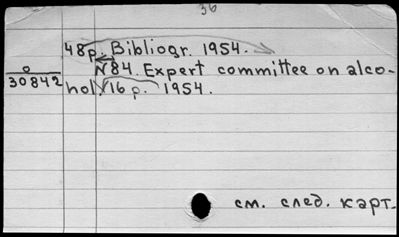 36
48p. Bibliogr. 1954.
N84. Expert committee on alco-
0
30842
hol. 16 p. 1954.
см. след. карт.